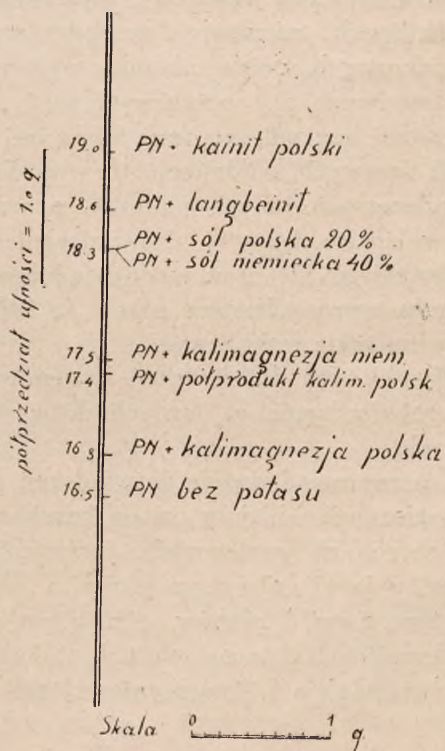 półprzedział ufności = 1.0 q
19.0 PN + kainit polski
18.6 PN + langbeinit
18.3 PN + sól polska 20%
PN + sól niemiecka 40%
17.5 PN + kalimagnezja niem
17.4 PN + półprodukt kalim. polsk
16.8 PN + kalimagnezja polska
16.5 PN bez potasu
Skala 0 1 q